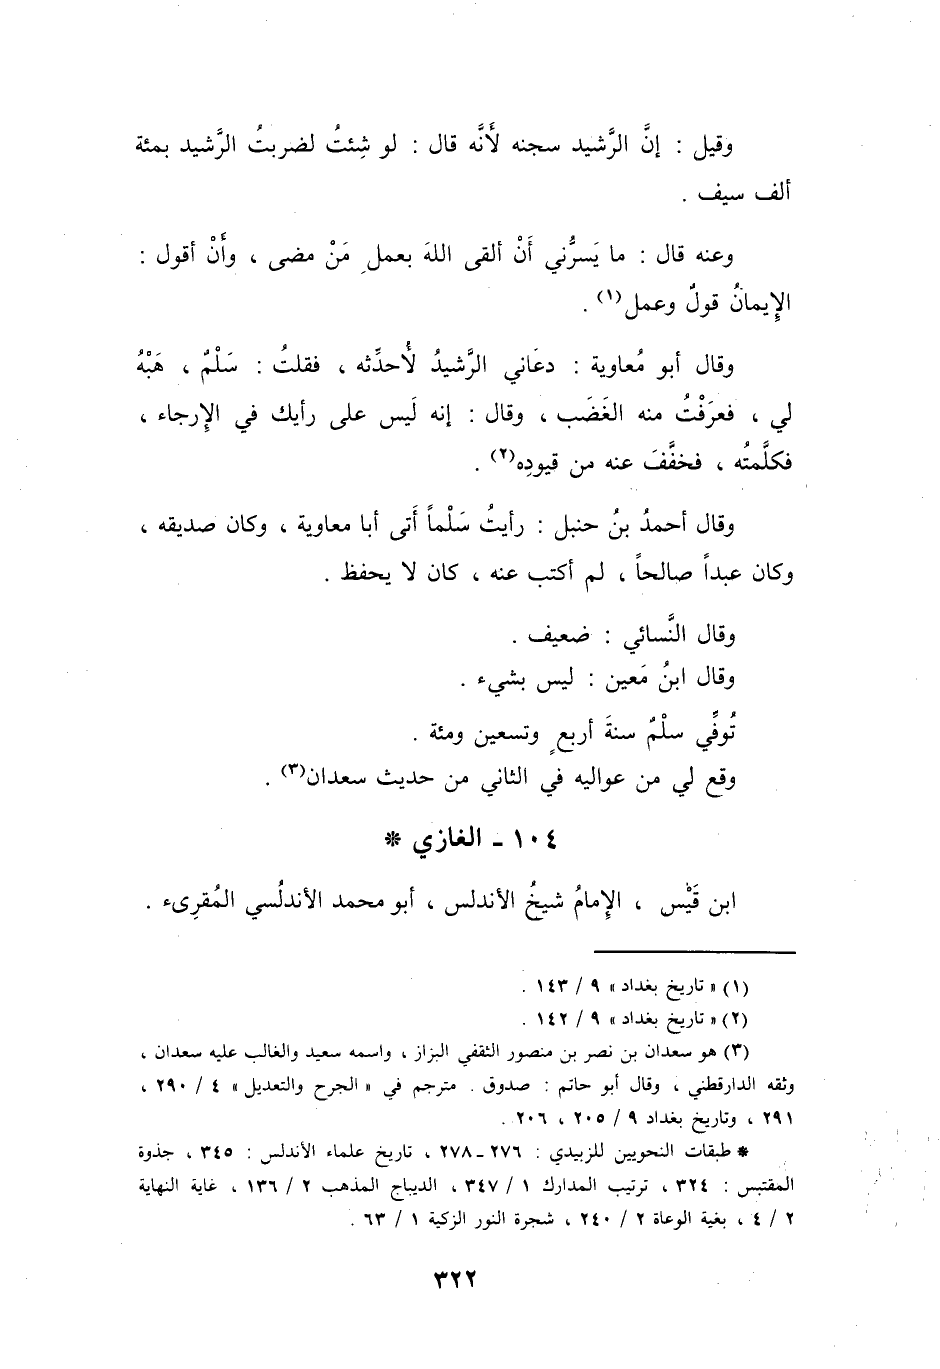 وقيل : إنَّ الرَّشيد سجنه لأَنَّه قال : لو شِئتُ لضربتُ الرَّشيد بمئة
ألف سيف .
وعنه قال : ما يَسرُّني أَنْ ألقى اللهَ بعملِ مَنْ مضى ، وأَنْ أقول :
الإِيمانُ قولٌ وعمل(١) .
وقال أبو مُعاوية : دعَاني الرَّشيدُ لأُحدِّثه ، فقلتُ : سَلْمٌ ، هَبْهُ
لي ، فعرَفْتُ منه الغَضَب ، وقال : إنه لَيس على رأيك في الإِرجاء ،
فكلَّمتُه ، فخفَّفَ عنه من قيودِه(٢) .
وقال أحمدُ بنُ حنبل : رأيتُ سَلْماً أَتى أبا معاوية ، وكان صديقه ،
وكان عبداً صالحاً ، لم أكتب عنه ، كان لا يحفظ .
وقال النَّسائي : ضعيف .
وقال ابنُ مَعين : ليس بشيء .
تُوفِّي سلْمٌ سنةَ أربعٍ وتسعين ومئة .
وقع لي من عواليه في الثاني من حديث سعدان(٣) .
١٠٤ - الغازي *
ابن قَيْس ، الإِمامُ شيخُ الأندلس ، أبو محمد الأندلُسي المُقرِىء .
(١) « تاريخ بغداد » ٩ / ١٤٣ .
(٢) « تاريخ بغداد » ٩ / ١٤٢ .
(٣) هو سعدان بن نصر بن منصور الثقفي البزاز ، واسمه سعيد والغالب عليه سعدان ،
وثقه الدارقطني ، وقال أبو حاتم : صدوق . مترجم في « الجرح والتعديل » ٤ / ٢٩٠ ،
٢٩١ ، وتاريخ بغداد ٩ / ٢٠٥ ، ٢٠٦ .
* طبقات النحويين للزبيدي : ٢٧٦ - ٢٧٨ ، تاريخ علماء الأندلس : ٣٤٥ ، جذوة
المقتبس : ٣٢٤ ، ترتيب المدارك ١ / ٣٤٧ ، الديباج المذهب ٢ / ١٣٦ ، غاية النهاية
٢ / ٤ ، بغية الوعاة ٢ / ٢٤٠ ، شجرة النور الزكية ١ / ٦٣ .
٣٢٢